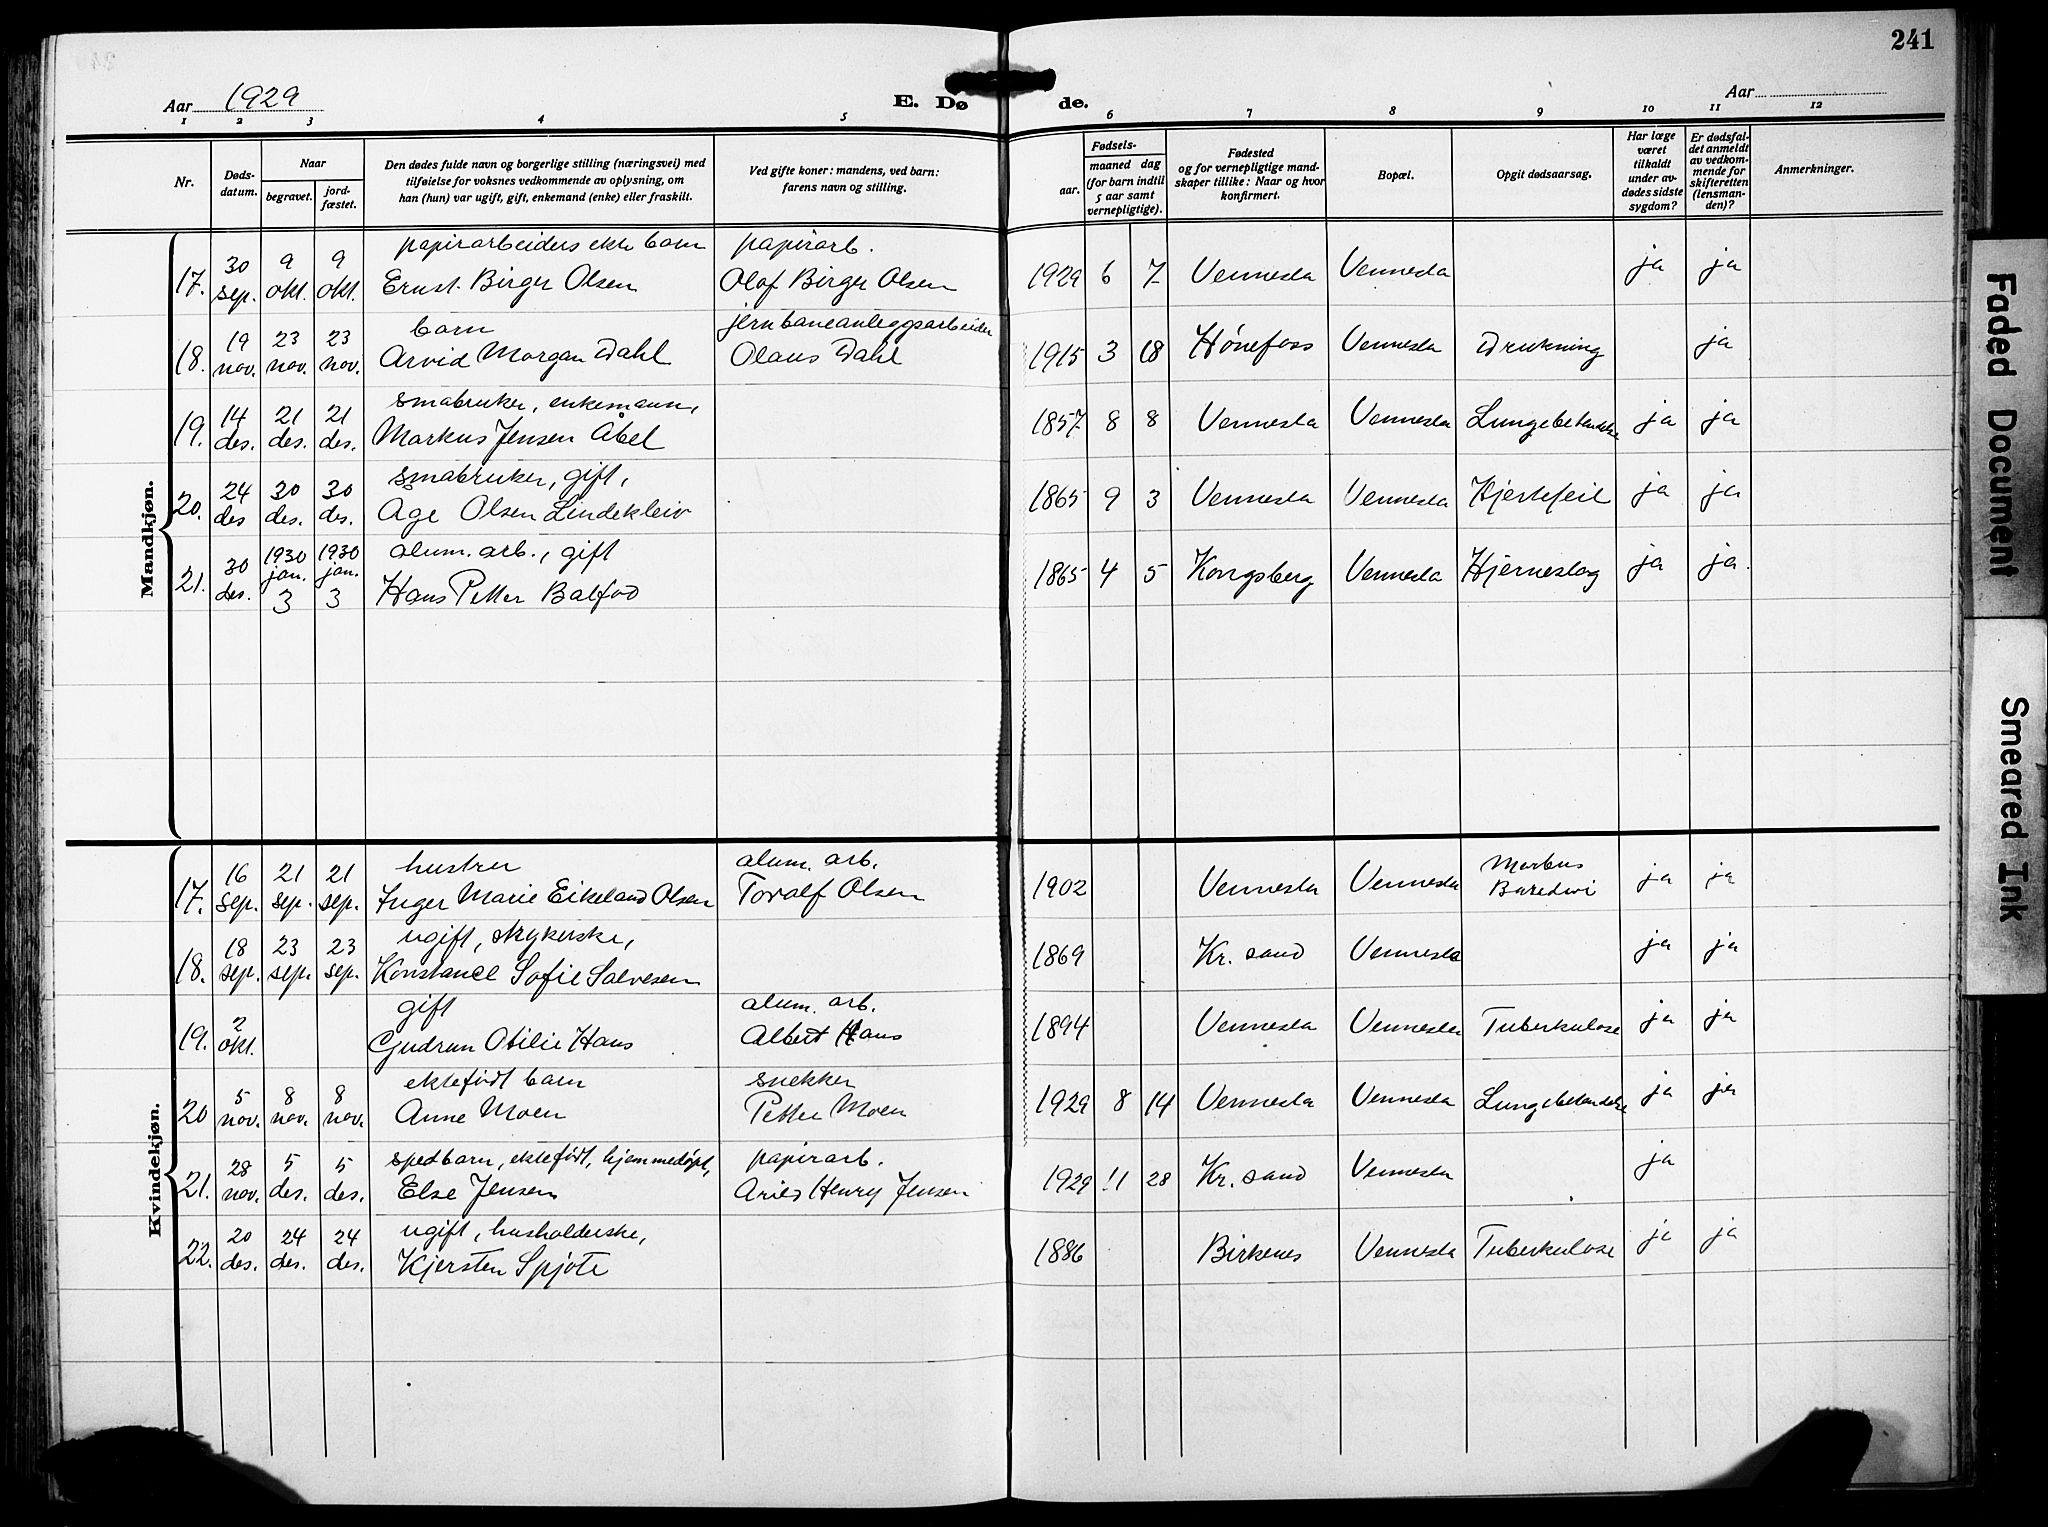 241
Aar 1929
E. Dø de.
Aar
1 2 3 4 5 6 7 8 9 10 11 12
Nr.
Døds-
datum.
Naar
begravet.
jord-
fæstet.
Den dødes fulde navn og borgerlige stilling (næringsvei) med
tilføielse for voksnes vedkommende av oplysning, om
han (hun) var ugift, gift, enkemand (enke) eller fraskilt.
Ved gifte koner: mandens, ved barn:
farens navn og stilling.
Fødsels-
aar.
maaned dag
(for barn indtil
5 aar samt
vernepligtige).
Fødested
og for vernepligtige mand-
skaper tillike: Naar og hvor
konfirmert.
Bopæl.
Opgit dødsaarsag.
Har læge
været
tilkaldt
under av-
dødes sidste
sygdom?
Er dødsfal-
det anmeldt
av vedkom-
mende for
skifteretten
(lensman-
den)?
Anmerkninger.
Mandkjøn.
papirarbeiders ekte barn papirarb.
17. 30 sep. 9 okt. 9 okt. Ernst Birger Olsen Olaf Birger Olsen 1929 6 7 Vennesla Vennesla ja ja
barn jernbaneanleggsarbeider
18. 19 nov. 23 nov. 23 nov. Arvid Morgan Dahl Olaus Dahl 1915 3 18 Hønefoss Vennesla Drukning ja
småbruker, enkemann,
19. 14 des. 21 des. 21 des. Markus Jensen Åbel 1857 8 8 Vennesla Vennesla Lungebetendelse ja ja
småbruker, gift,
20. 24 des 30 des. 30 des. Åge Olsen Lindekleiv 1865 9 3 Vennesla Vennesla Hjertefeil ja ja
alum. arb., gift
21. 30 des. 1930 jan. 3 1930 jan. 3 Hans Petter Balfod 1865 4 5 Kongsberg Vennesla Hjerneslag ja ja.
Kvindekjøn.
hustru alum. arb.
17. 16 sep. 21 sep. 21 sep. Inger Marie Eikeland Olsen Toralf Olsen 1902 Vennesla Vennesla Morbus Basedowi ja ja
ugift, strykerske,
18. 18 sep. 23 sep. 23 sep. Konstance Sofie Salvesen 1869 Kr. sand Vennesla ja ja
gift alum. arb.
19. 2 okt. Gudrun Otilie Haus Albert Haus 1894 Vennesla Vennesla Tuberkulose ja ja
ektefødt barn snekker
20 5 nov. 8 nov. 8 nov. Anne Moen Petter Moen 1929 8 14 Vennesla Vennesla Lungebetendelse ja ja
spedbarn, ektefødt, hjemmedøpt, papirarb.
21. 28 nov. 5 des. 5 des. Else Jensen Arild Henry Jensen 1929 11 28 Kr. sand Vennesla ja
ugift, husholderske,
22. 20 des. 24 des. 24 des. Kjersten Spjote 1886 Birkenes Vennesla Tuberkulose ja ja
Faded Document
Smeared Ink